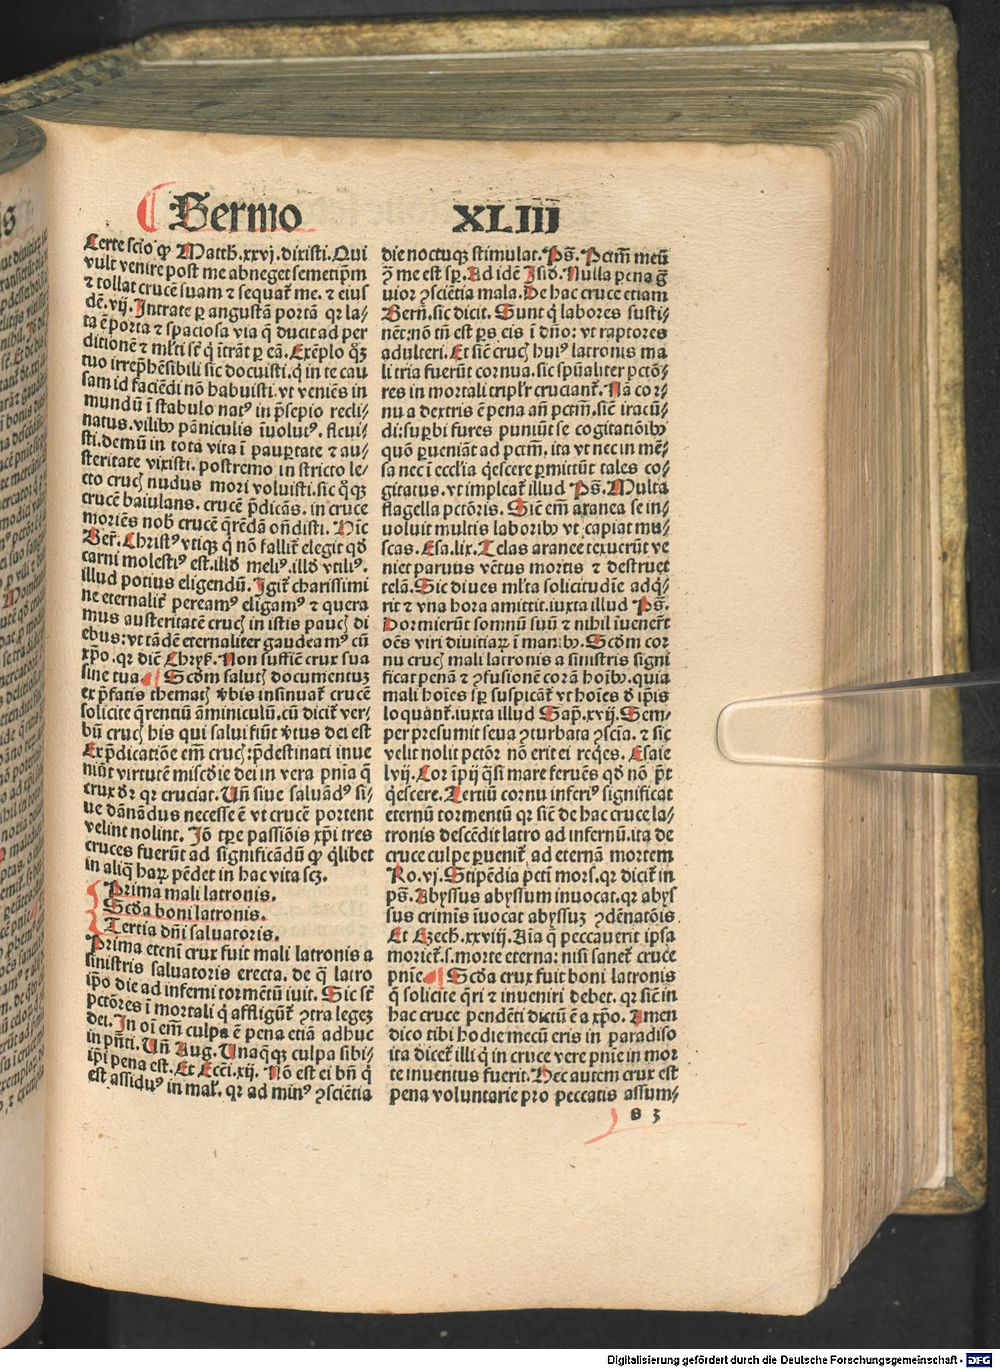 Sermo XLIII
Certe scio qꝫ Matth.xxvj.dixisti.Qui
vult venire post me abneget semetip̄m
⁊ tollat crucē suam ⁊ sequat᷑ me. ⁊ eius
dē.vij.Intrate ꝑ angustā portā qꝛ la⸗
ta ē porta ⁊ spaciosa via q̄ ducit ad per
ditionē ⁊ ml̓ti st̄ q̇ ītrāt ꝑ eā.Exēplo q̊qꝫ
tuo irrep̄hēsibili sic docuisti.q̇ in te cau
sam id faciēdi nō babuisti.vt veniēs in
mundū ī stabulo natꝰ in p̄sepio recli⸗
natus.vilibꝰ pāniculis īuolutꝰ.fleui⸗
sti.demū in tota vita ī pauꝑtate ⁊ au⸗
steritate vixisti.postremo in stricto le⸗
cto crucꝭ nudus mori voluisti.sic q̊qꝫ
crucē baiulans.crucē p̄dicās.in cruce
moriēs nob̄ crucē q̄rēdā on̄disti. Hīc
Ber̄.Christꝰ vtiqꝫ q̇ nō fallit᷑ elegit qd̓
carni molestiꝰ est.illd̓ meliꝰ.illd̓ vtiliꝰ.
illud potius eligendū.Igit᷑ charissimi
ne eternalit᷑ pereamꝰ eligamꝰ ⁊ quera
mus austeritatē crucꝭ in istis paucꝭ di
ebus:vt tādē eternaliter gaudeamꝰ cū
xp̄o.qꝛ dic̄ Chryẜ.Non suffic̄ crux sua
sine tua.¶ Scd̓m salutꝭ documentuꝫ
ex p̄fatis thematꝭ v̓bis insinuat᷑ crucē
solicite q̄rentiū aminiculū.cū dicit᷑ ver⸗
bū crucꝭ his qui salui fiūt v̓tus dei est
Ex p̄dicatiōe em̄ crucꝭ:p̄destinati inue
niūt virtutē misc̓die dei in vera pn̄ia q̄
crux d̓r qꝛ cruciat.Vn̄ siue saluādꝰ si⸗
ue dānādus necesse ē vt crucē portent
velint nolint. Iō tꝑe passiōis xp̄i tres
cruces fuerūt ad significādū qꝫ q̇libet
in aliq̄ haꝝ pēdet in hac vita scꝫ.
Prima mali latronis.
Scd̓a boni latronis.
Tertia dn̄i saluatoris.
Prima etenī crux fuit mali latronis a
sinistris saluatoris erecta. de q̄ latro
ip̄o die ad inferni tormētū iuit. Sic st̄
pctōres ī mortali q̇ affligūt᷑ ↄtra legeꝫ
dei.In oī em̄ culpa ē pena etiā adhuc
in pn̄ti.Vn̄ Aug.Vnaq̄qꝫ culpa sibi⸗
ip̄i pena est.Et Ecc̄i.xij. Nō est ei bn̄ q̇
est assiduꝰ in mal̓.qꝛ ad minꝰ ↄsciētia
die noctuqꝫ stimulat.Ps̄. Pctm̄ meū
ↄ̄ me est sꝑ.Ad idē Isid̓.Nulla pena g̓
uior ↄsciētia mala.De hac cruce etiam
Bern̄.sic dicit. Sunt q̇ labores susti⸗
nēt:nō tn̄ est ꝑs eis ī dn̄o: vt raptores
adulteri.Et sic̄ crucꝭ huiꝰ latronis ma
li tria fuerūt cornua.sic spūaliter pctō⸗
res in mortali triplr̓ cruciant᷑.Nā cor⸗
nu a dextris ē pena an̄ pctm̄.sic̄ iracū⸗
di:suꝑbi fures puniūt se cogitatiōibꝰ
quō ꝑueniāt ad pctm̄.ita vt nec in mē⸗
sa nec ī eccl̓ia q̇escere ꝑmittūt tales co⸗
gitatus.vt impleat᷑ illud Ps̄.Multa
flagella pctōris. Sic̄ em̄ aranea se in⸗
uoluit multis laboribꝰ vt capiat mu⸗
scas.Esa.lix.Telas aranee texuerūt ve
niet paruus vētus mortis ⁊ destruet
telā.Sic diues ml̓ta solicitudīe adq̇⸗
rit ⁊ vna hora amittit.iuxta illud Ps̄.
Dormierūt somnū suū ⁊ nihil īuenert̄
oēs viri diuitiaꝝ ī manibꝰ.Scd̓m cor
nu crucꝭ mali latronis a sinistris signi
ficat penā ⁊ ↄfusionē corā hoībꝰ.quia
mali hoīes sꝑ suspicāt᷑ vt hoīes d̓ ip̄is
loquant᷑.iuxta illud Sap̄.xvij.Sem⸗
per presumit seua ↄturbata ↄscīa. ⁊ sic
velit nolit pctōr nō erit ei req̇es. Esaie
lvij.Cor īpij q̄si mare feruēs qd̓ nō p̄t
q̇escere.Tertiū cornu inferiꝰ significat
eternū tormentū qꝛ sic̄ de hac cruce la⸗
tronis descēdit latro ad infernū.ita de
cruce culpe ꝑuenit᷑ ad eternā mortem
Ro.vj.Stipēdia pcti mors.qꝛ dicit᷑ in
ps̄.Abyssus abyssum inuocat.qꝛ abyſ
sus crimīs īuocat abyssuꝫ ↄdēnatōis.
Et Ezech.xxviij.Aīa q̄ peccauerit ipsa
moriet᷑.s.morte eterna: nisi sanet᷑ cruce
pnīe.¶ Scd̓a crux fuit boni latronis
q̄ solicite q̄ri ⁊ inueniri debet.qꝛ sic̄ in
hac cruce pendēti dictū ē a xp̄o. Amen
dico tibi hodie mecū eris in paradiso
ita dicet᷑ illi q̇ in cruce vere pnīe in mor
te inuentus fuerit.Hec autem crux est
pena voluntarie pro peccatis assum⸗
s 3
Digitalisierung gefördert durch die Deutsche Forschungsgemeinschaft - DFG